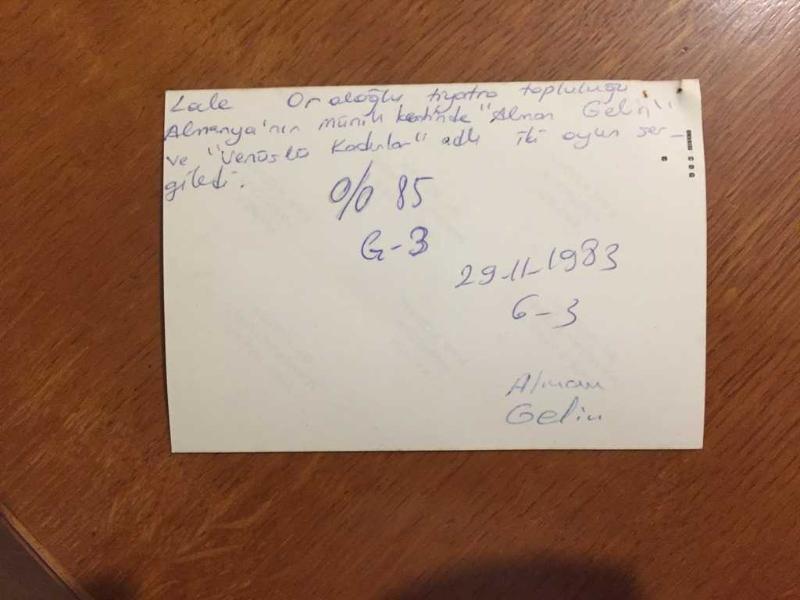 Lale Oraloğlu tiyatro topluluğu
Almanya'nın münih kentinde "Alman Gelin"
ve "Venüslü Kadınlar" adlı iki oyun ser-
giledi.
% 85
G-3
29-11-1983
G-3
Alman
Gelin